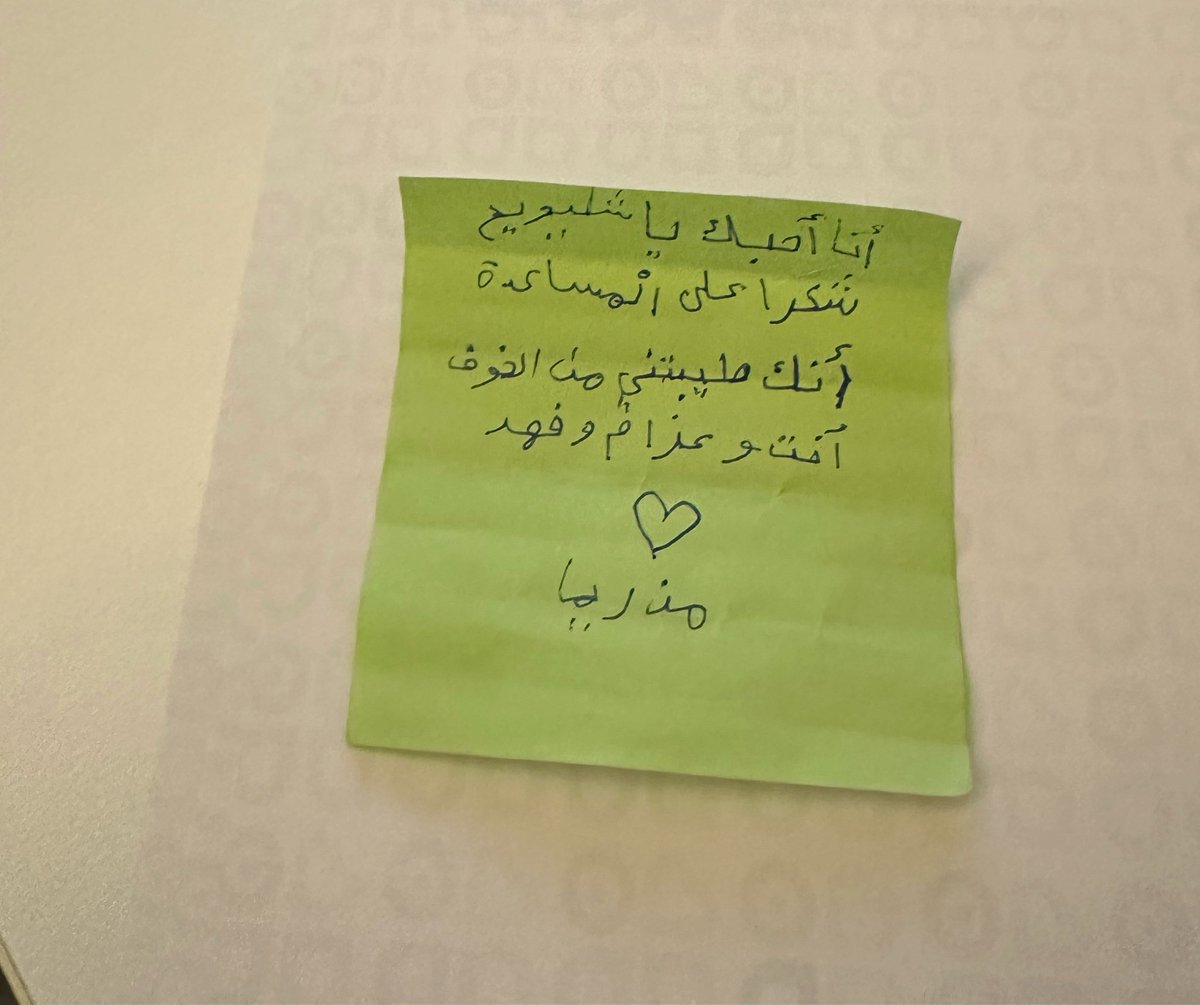 أنا أحبك يا شليويح
شكرا على الْمساعدة
أنك طيبتني من الخوف
أنت و عزام و فهد
من ريما